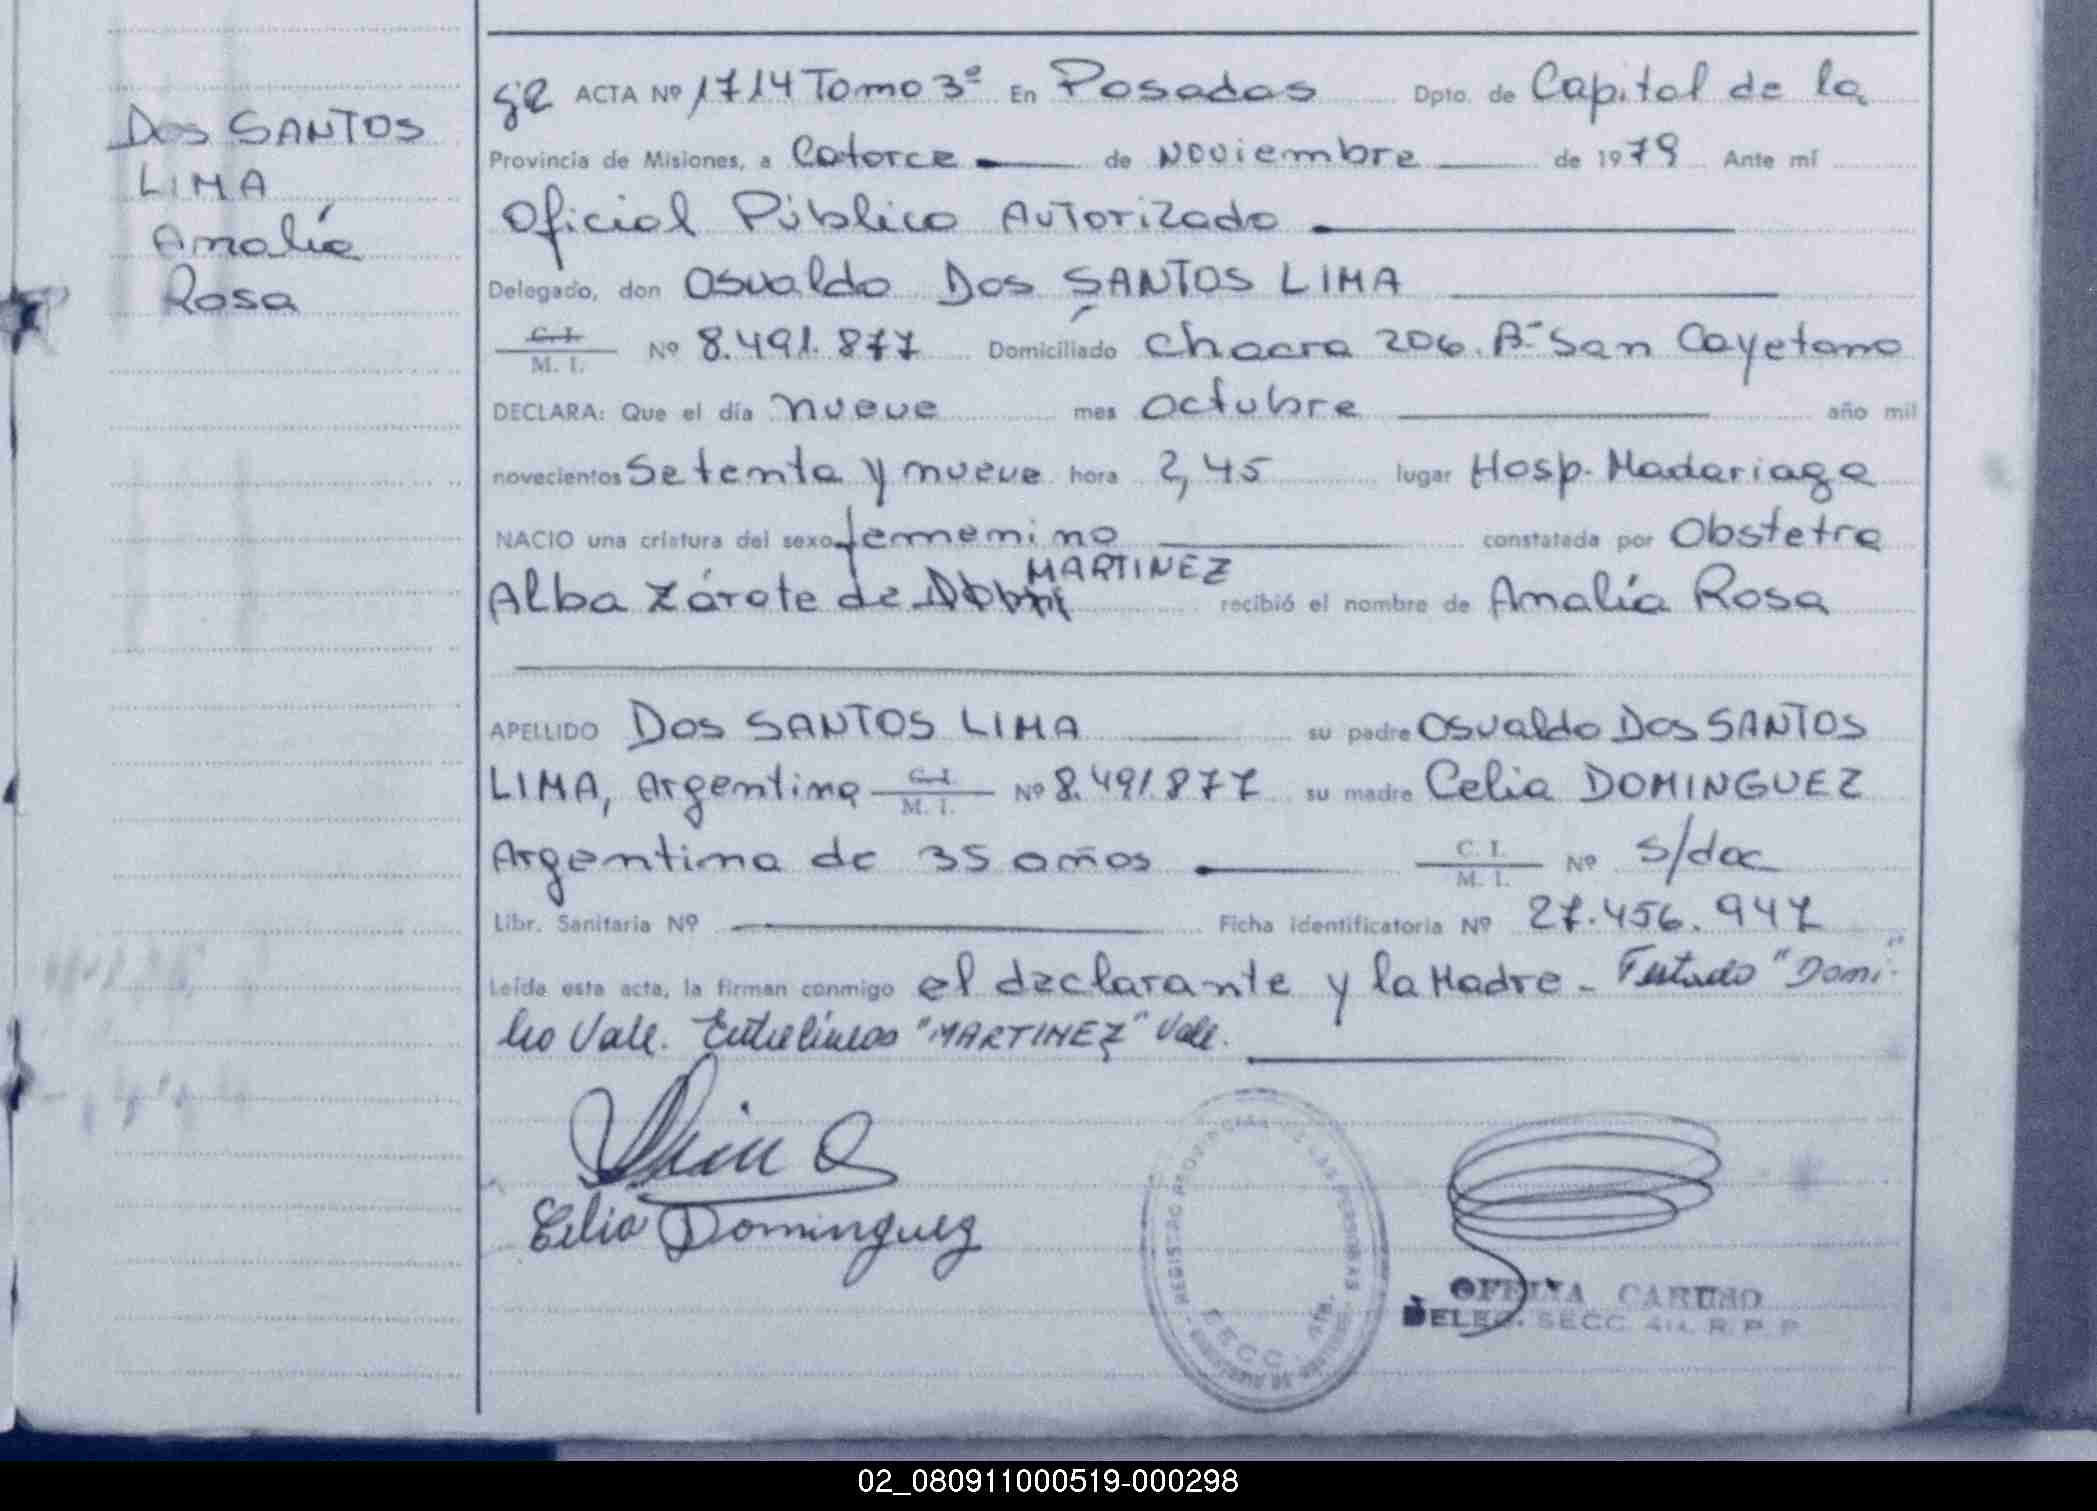 Dos SANTOS
LIMA
Amalia
Rosa
ACTA Nº 1714 Tomo 3º En Posadas Dpto. de Capital de la
Provincia de Misiones, a Catorce de Noviembre de 1979 Ante mí
Oficial Público Autorizado
Delegado, don Osvaldo Dos SANTOS LIMA
C. I. M. I. Nº 8.491.877 Domiciliado Chacra 206. Bº San Cayetano
DECLARA: Que el día nueve mes octubre año mil
novecientos Setenta y nueve hora 2,45 lugar Hosp. Madariaga
NACIO una criatura del sexo femenino constatada por Obstetra
MARTINEZ
Alba Zárate de recibió el nombre de Amalia Rosa
APELLIDO Dos SANTOS LIMA su padre Osvaldo Dos SANTOS
LIMA, Argentina C. I. M. I. Nº 8.491.877 su madre Celia DOMINGUEZ
Argentina de 35 años C. I. M. I. Nº s/doc
Libr. Sanitaria Nº Ficha Identificatoria Nº 27.456.947
Leída esta acta, la firman conmigo el declarante y la Madre - Testado "Domi
Vale. Entrelíneas "MARTINEZ" Vale.
Celia Dominguez
REGISTRO PROVINCIAL DE LAS PERSONAS
OFELIA CARUSO
DELEG. SECC. 4ta. R. P. P.
02_080911000519-000298